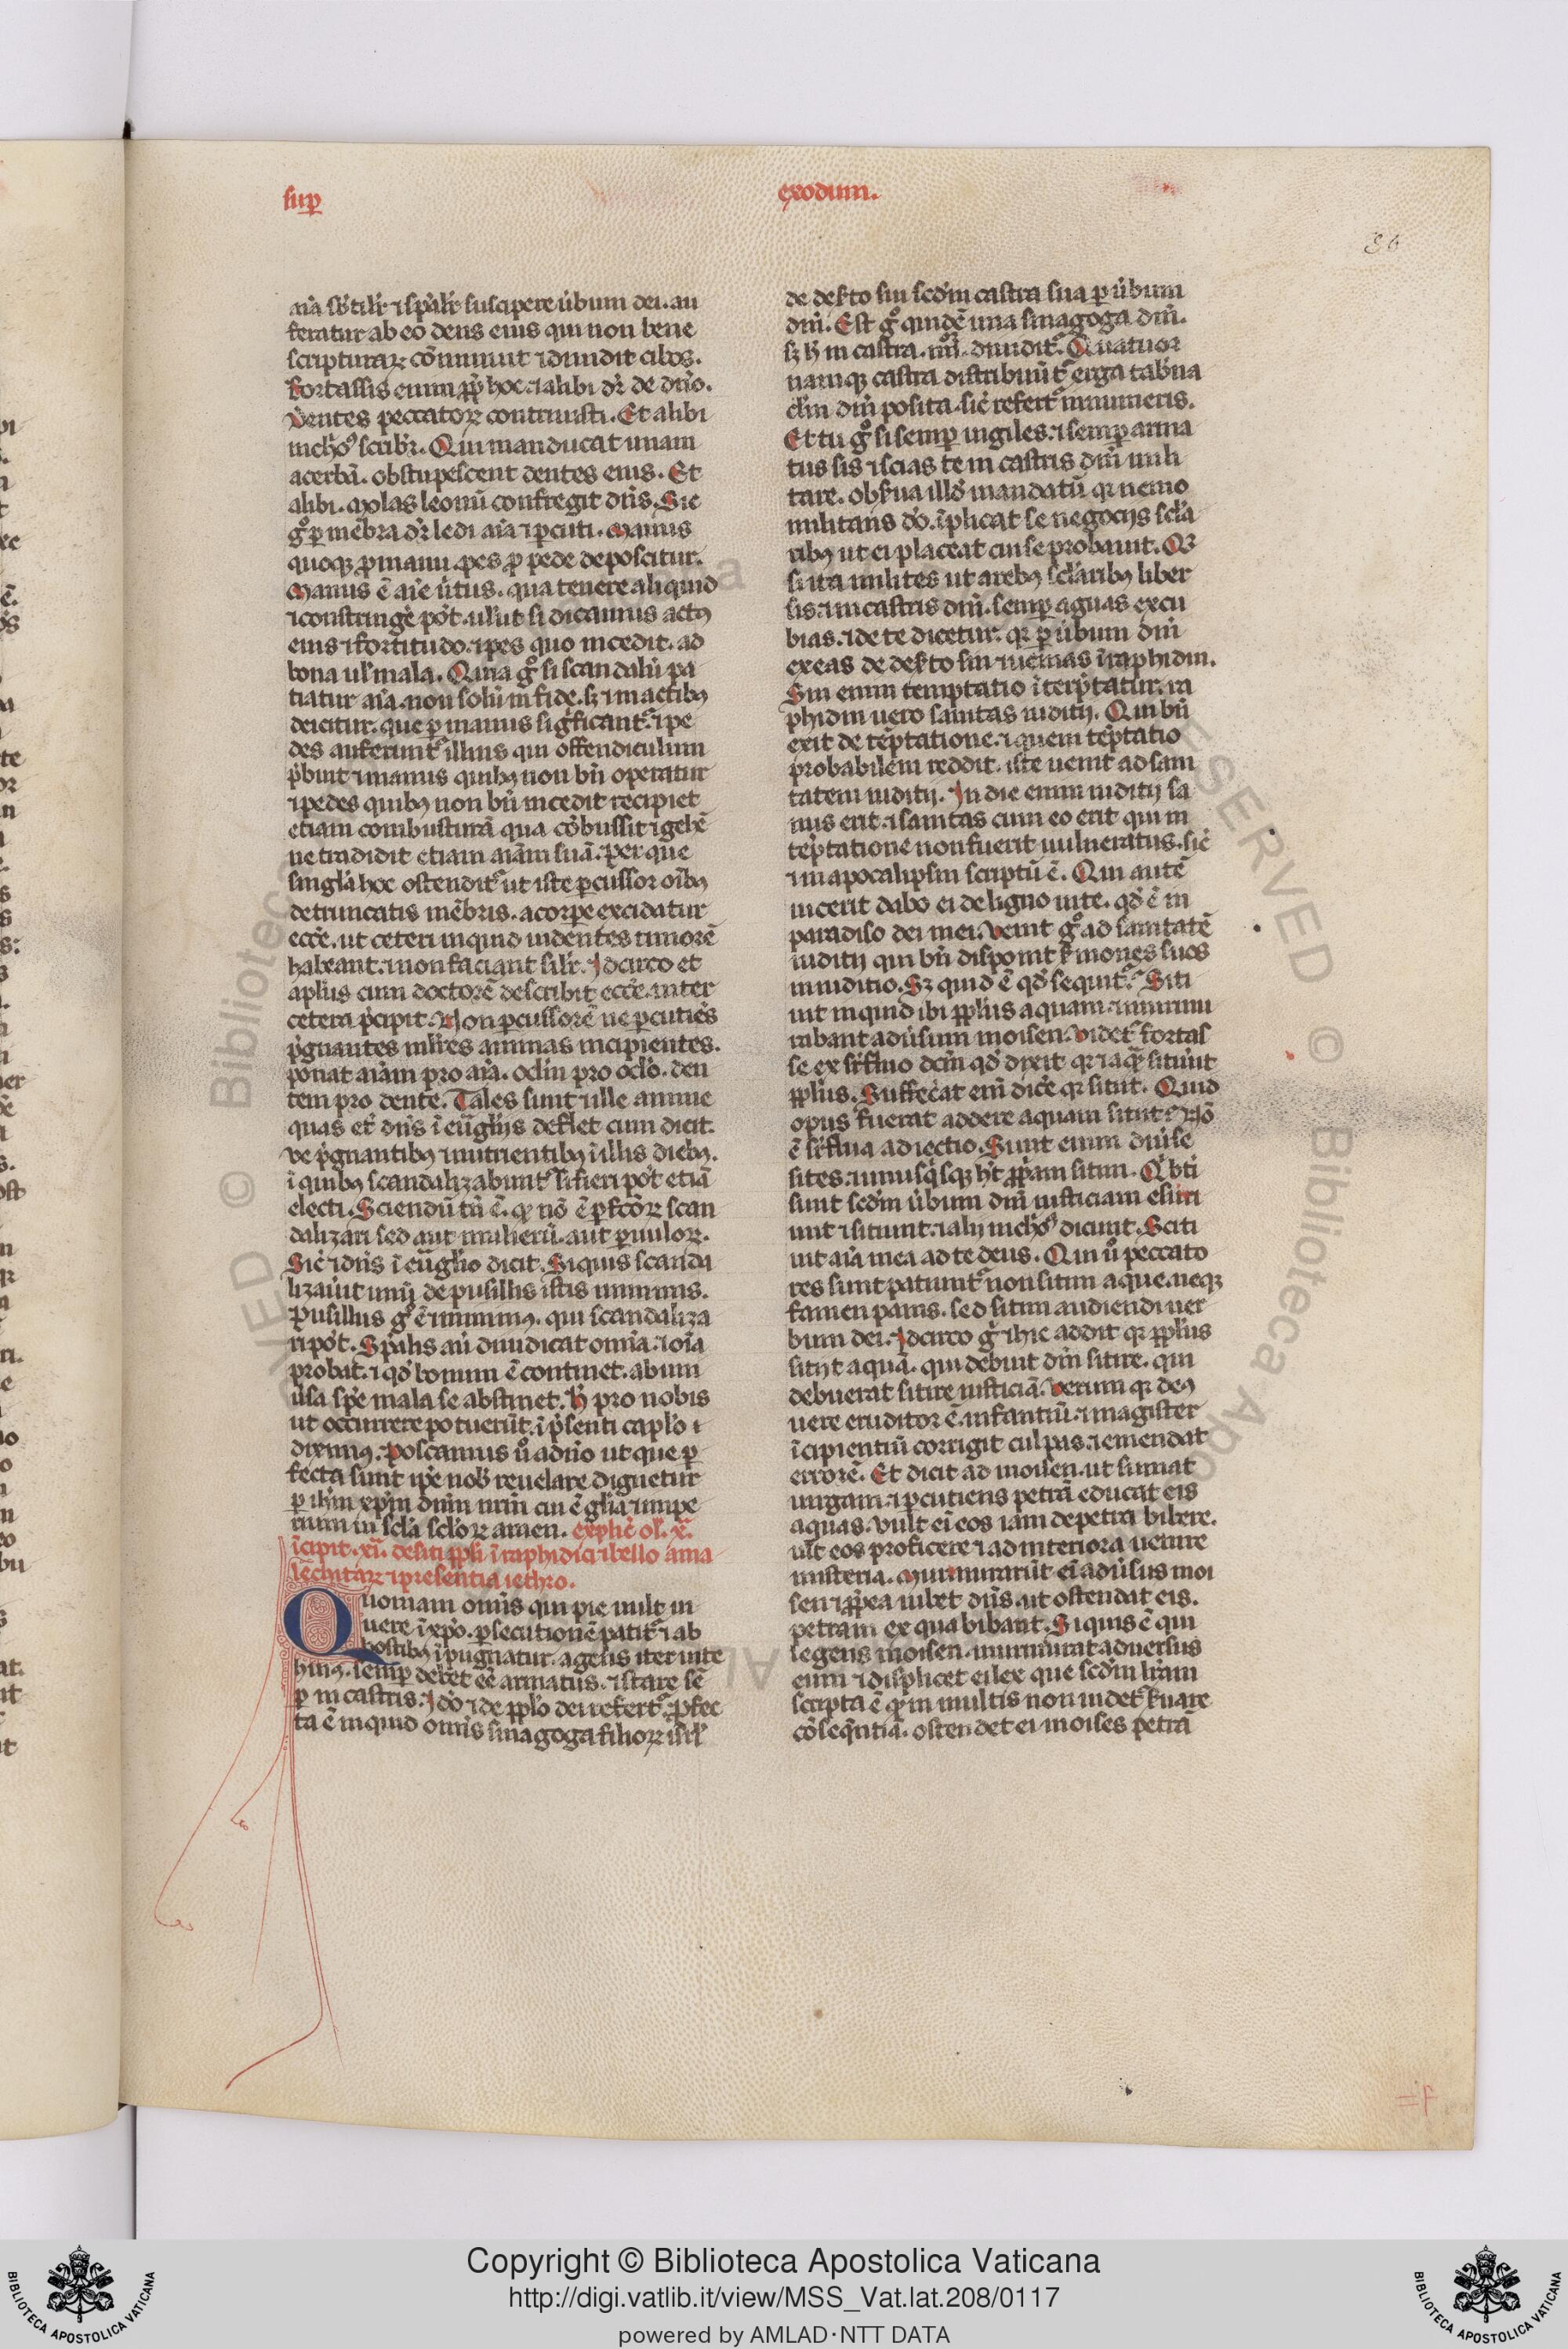 sup̱
exodum.
36
aīa sb̄tilit̄ ⁊ sp̄alit̄ suscipere ūbum dei. au
feratur ab eo dens eius qui non bene
scripturaꝝ cōminuit ⁊ diuidit cibos.
Fortassis enim ꝓp̄ hoc. ⁊ alibi dr̄ de dn̄o.
Dentes peccatoꝝ contriuisti. Et alibi
inch̄oꝰ scribr̄. Qui manducat unam
acerbā. obstupescent dentes eius. Et
alibi. Molas leonū confregit dn̄s. Sic
g̊ ꝑ mēbra dr̄ ledi aīa ⁊ ꝑcuti. Manus
quoqꝫ ꝓ manu. pes ꝓ pede deposcitur.
Manus ē aīe ūtus. qua tenere aliquid
⁊ constringē pōt. ul̄ut si dicamus actꝰ
eius ⁊ fortitudo. ⁊ pes quo incedit. ad
bona ul̄ mala. Quia g̊ si scandalū pa
tiatur aīa. non solū in fide. sꝫ ⁊ in actibꝰ
deicitur. que ꝑ manus sigficant̄. ⁊ pe
des auferunt̄ illius qui offendiculum
p̄buit ⁊ manus quibꝰ non bn̄ operatur
⁊ pedes quibꝰ non bn̄ incedit recipiet
etiam combusturā qua cōbussit ⁊ gehē
ne tradidit etiam aīam suā. Per que
singl̄a hoc ostendit̄ ut iste ꝑcussor oībꝰ
detruncatis mēbris. a corpe excidatur
ecc̄e. ut ceteri inquid uidentes timorē
habeant. ⁊ non faciant sil̄r. Idcirco et
apl̄us cum doctorē describit ecc̄e. inter
cetera p̄cipit. Non ꝑcussorē ne ꝑcutiēs
p̄gnantes ml̄res animas incipientes.
ponat aīam pro aīa. ocl̄m pro ocl̄o. den
tem pro dente. Tales sunt ⁊ ille anime
quas et̄ dn̄s ī eūgl̄ijs deflet cum dicit.
Ve p̄gnantibꝰ ⁊ nutrientibꝰ ī illis diebꝰ.
ī quibꝰ scandalizabunt̄ si fieri pōt etiā
electi. Sciendū tn̄ ē. qꝫ nō ē ꝑfcōꝝ scan
dalizari sed aut mulierū. aut ꝑuuloꝝ.
Sic̄ ⁊ dn̄s ī eūgl̄io dicit. Si quis scanda
lizaūit unū de pusillis istis minimis.
Pusillus g̊ ē ⁊ minimꝰ. qui scandaliza
ri pōt. Sp̄alis aū diiudicat omīa. ⁊ oīa
probat. ⁊ qd̄ bonum ē continet. ab um
ūsa sp̄e mala se abstinet. H̄ pro nobis
ut occurrere potuerūt. ī p̄senti capl̄o ⁊
diximꝰ. Poscamus ū̊ a dn̄o ut que ꝑ
fecta sunt ip̄e nob̄ reuelare dignetur
ꝑ ih̄m xp̄m dn̄m nr̄m cui ē gl̄ia ⁊ impe
rium in scl̄a scl̄oꝝ amen. explic̄ ol̄. x̄.
īcipit. xī. de siti ppl̄i ī raphidin ⁊ bello ama
lechitaꝝ ⁊ presentia iethro.
Quoniam omīs qui pie uult ui
uere ī xp̄o. ꝑsecutionē patit̄ ⁊ ab
hostibꝰ īpugnatur. agens iter uite
huiꝰ. semꝑ debet eē armatus. ⁊ stare sē
ꝑ in castris. Ido̊ ⁊ de ppl̄o dei refert̄. Profec
ta ē inquid omīs sinagoga filioꝝ isrl̄
de desꝭto sin scd̄m castra sua ꝑ ūbum
dn̄i. Est g̊ quidē una sinagoga dn̄i.
sꝫ h̄ in castra. iiii̊. diuidit̄. Quatuor
namqꝫ castra distribuūt̄ erga tab̄na
cl̄m dn̄i posita. sic̄ refert̄ in numeris.
Et tu g̊ si semꝑ uigiles. ⁊ semꝑ arma
tus sis ⁊ scias te in castris dn̄i mili
tare. obs̄ua illd̄ mandatū qꝛ nemo
militans do̊. īplicat se negocijs scl̄a
ribꝰ ut ei placeat cui se probauit. Qꝛ
si ita milites ut a rebꝰ scl̄aribꝰ liber
sis. ⁊ in castris dn̄i. semꝑ aguas excu
bias. ⁊ de te dicetur. qꝛ ꝑ ūbum dn̄i
exeas de desꝭto sin ⁊ uenias ī raphidin.
Sin enim temptatio īterp̄tatur. ra
phidin uero sanitas iuditij. Qui bn̄
exit de tēptatione. ⁊ quem tēptatio
probabilem reddit. iste uenit ad sani
tatem iuditij. In die enim iuditij sa
nus erit. ⁊ sanitas cum eo erit qui in
tēptatione non fuerit uulneratus. sic̄
⁊ in apocalipsin scriptū ē. Qui autē
uicerit dabo ei de ligno uite. qd̄ ē in
paradiso dei mei. Venit g̊ ad sanitatē
iuditij qui bn̄ disponit s̄mones suos
in iuditio. Sꝫ quid ē qd̄ sequit̄. Siti
uit inquid ibi ppl̄us aquam. ⁊ murmu
rabant adūsum moisen. Videt̄ fortas
se ex sr̄fluo dcm̄ qd̄ dixit qꝛ ⁊ aqͣ situ̇it
ppl̄us. Suffec̄at enī dic̄e qꝛ sitiit. Quid
opus fuerat addere aquam sitiit. Nō
ē sr̄flua adiectio. Sunt enim diūse
sites. ⁊ unusqͥsqꝫ hʼt ꝓpͥam sitim. Qͥ bt̄i
sunt scd̄m ūbum dn̄i iusticiam esuri
unt ⁊ sitiunt. ⁊ alij inch̄oꝰ dicunt. Siti
uit aīa mea ad te deus. Qui ū̊ peccato
res sunt patiunt̄ non sitim aque. neqꝫ
famen panis. sed sitim audiendi uer
bum dei. Idcirco g̊ ⁊ hic addit qꝛ ppl̄us
sitijt aquā. qui debuit dn̄m sitire. qui
debuerat sitire iusticiā. Verum qꝛ deꝰ
uere eruditor ē. infantiū. ⁊ magister
īcipientiū corrigit culpas. ⁊ emendat
errorē. Et dicit ad moisen. ut sumat
uirgam. ⁊ ꝑcutiens petrā educat eis
aquas. Vult eī eos iam de petra bibere.
ult eos proficere ⁊ ad interiora uenire
misteria. Murmurarūt eī adūsus moi
sen ⁊ ꝓp̄ea iubet dn̄s. ut ostendat eis.
petram ex qua bibant. Si quis ē qui
legens moisen. murmurat aduersus
eum ⁊ displicet ei lex que scd̄m lr̄am
scripta ē qͣm in multis non uidet̄ s̄uare
cōseqn̄tiā. ostendet ei moises petrā
Copyright © Biblioteca Apostolica Vaticana
http://digi.vatlib.it/view/MSS_Vat.lat.208/0117
powered by AMLAD·NTT DATA